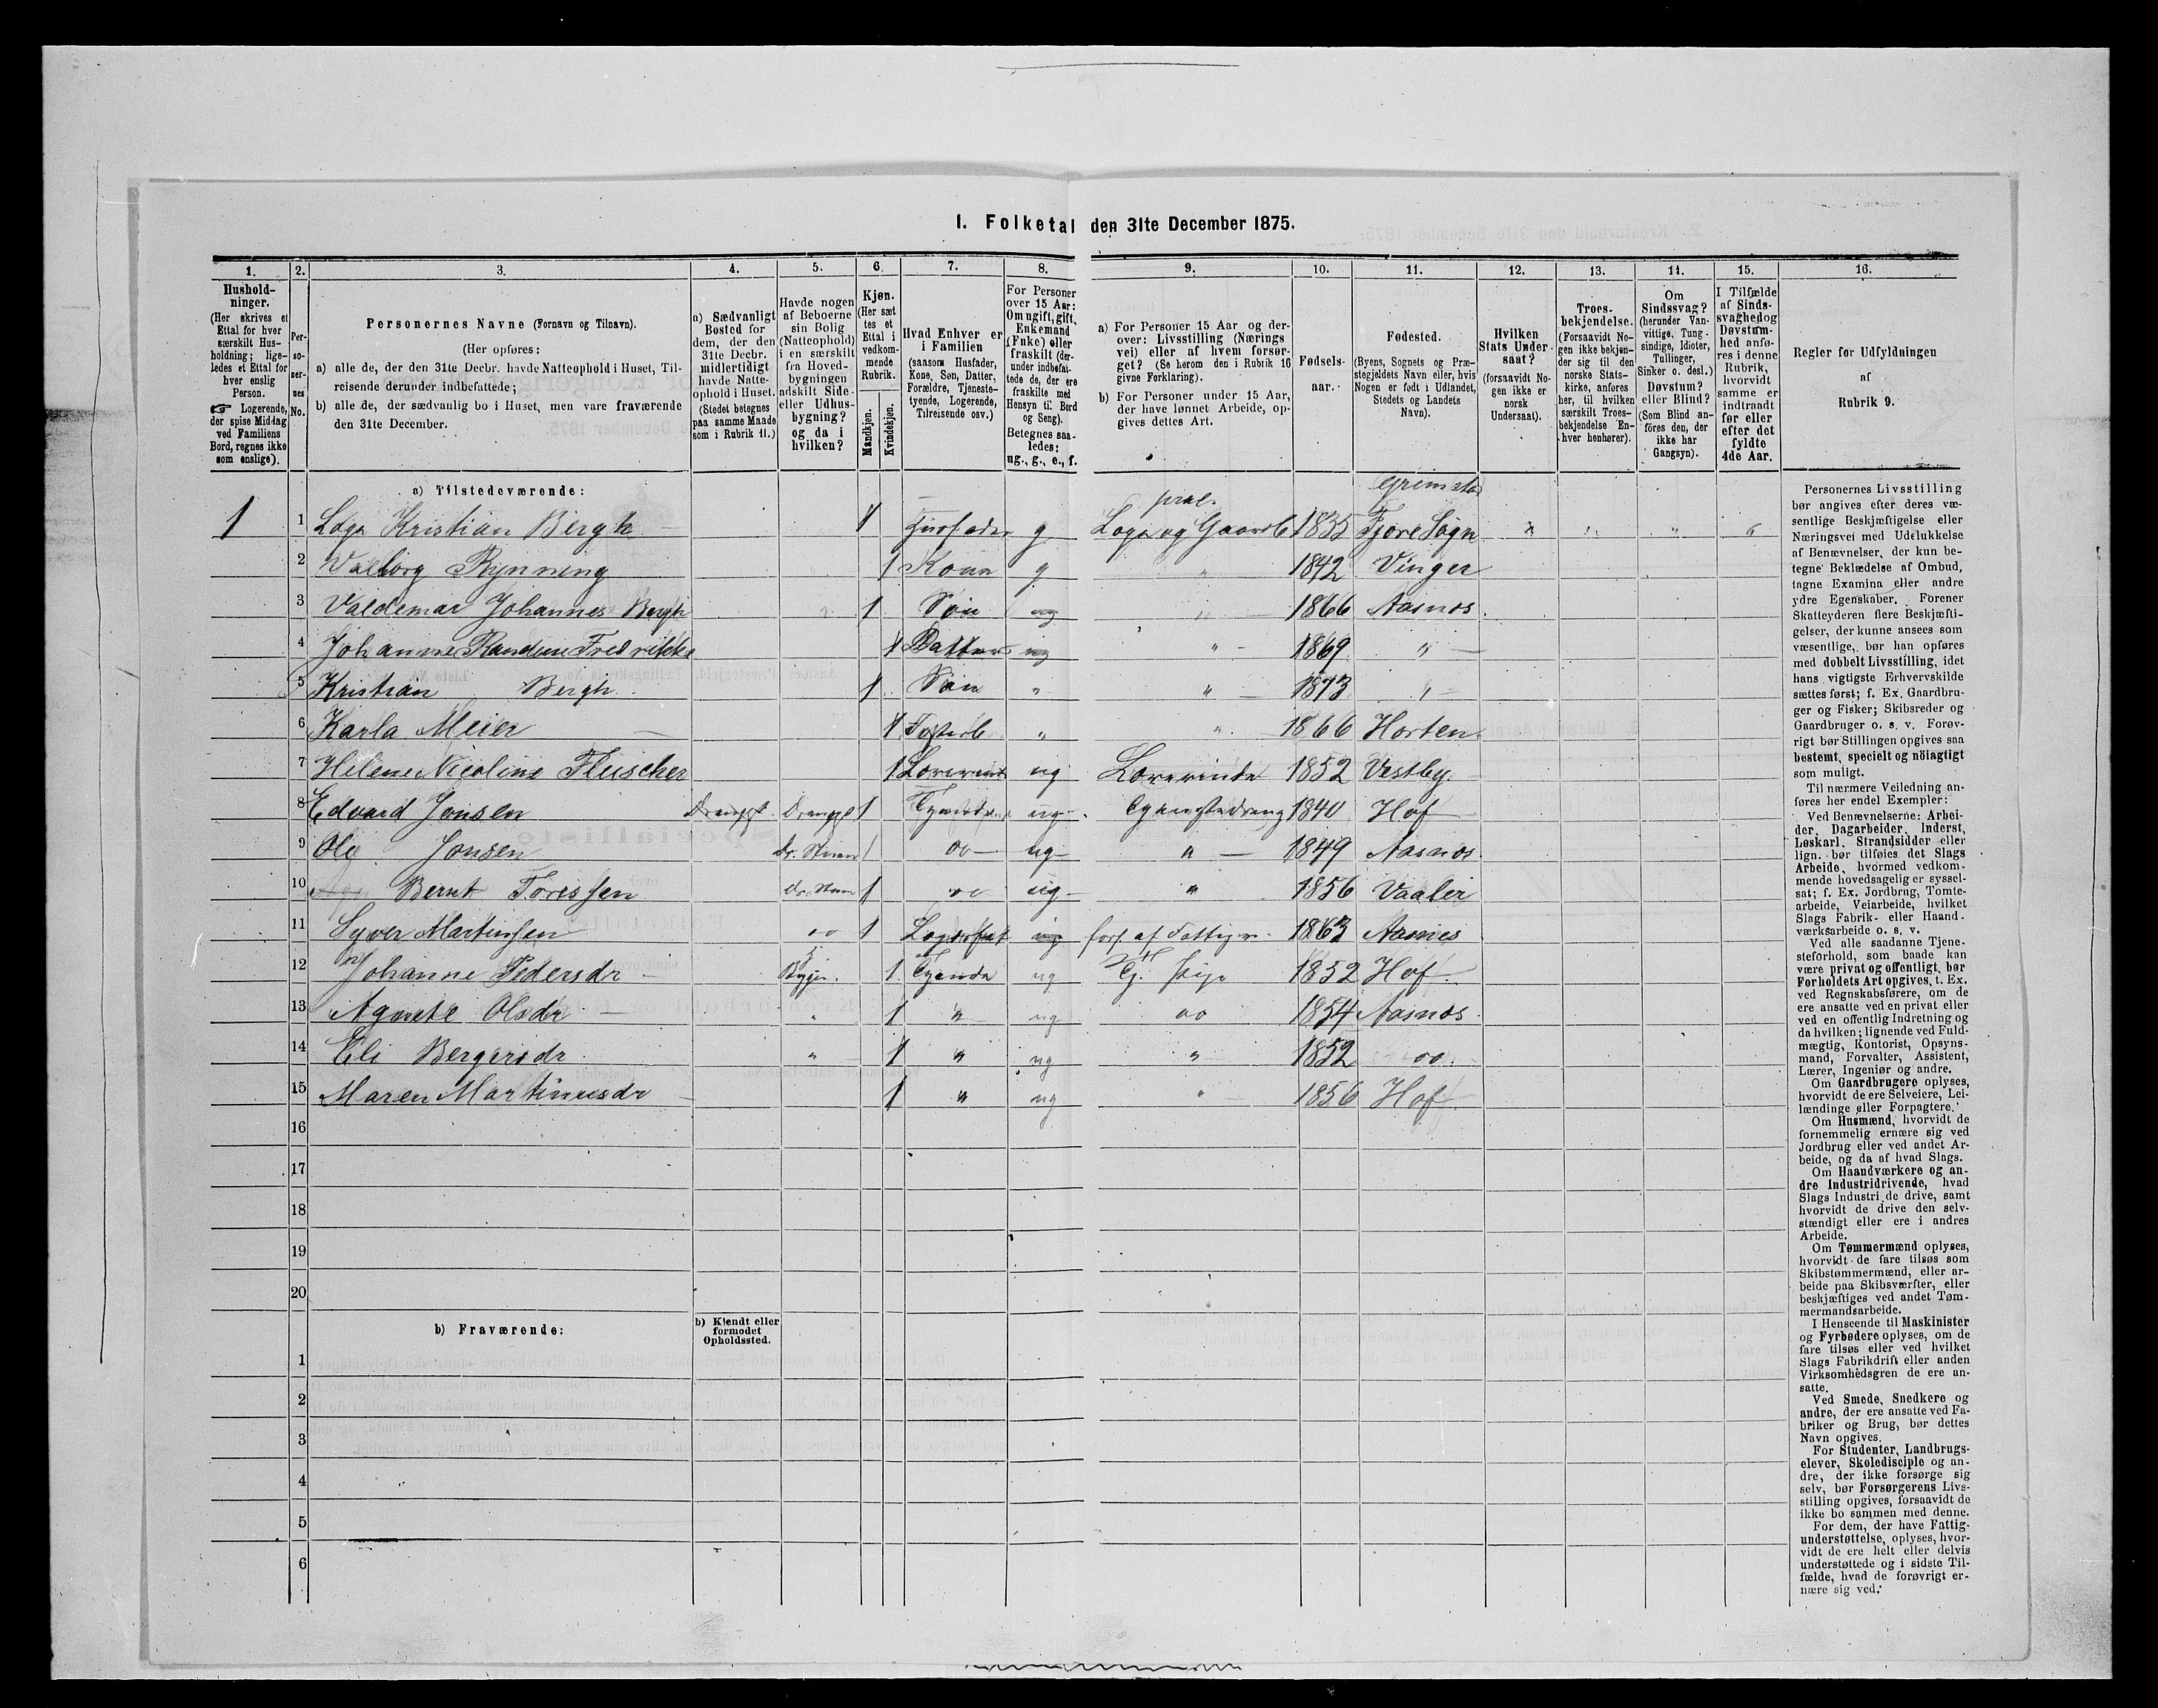 I. Folketal den 31te December 1875.
1. 2. 3. 4. 5. 6. 7. 8. 9. 10. 11. 12. 13. 14. 15. 16.
Hushold-
ninger.
(Her skrives et
Ettal for hver
særskilt Hus-
holdning; lige-
ledes et Ettal for
hver enslig
Person.
☞ Logerende,
der spise Middag
ved Familiens
Bord, regnes ikke
som enslige).
Per-
so-
ner-
nes
No.
Personernes Navne (Fornavn og Tilnavn).
(Her opføres:
a) alle de, der den 31te Decbr. havde Natteophold i Huset, Til-
reisende derunder indbefattede;
b) alle de, der sædvanlig bo i Huset, men vare fraværende
den 31te December.
a) Sædvanligt
Bosted for
dem, der den
31te Decbr.
midlertidigt
havde Natte-
ophold i Huset.
(Stedet betegnes
paa samme Maade
som i Rubrik 11.)
Havde nogen
af Beboerne
sin Bolig
(Natteophold)
i en særskilt
fra Hoved-
bygningen
adskilt Side-
eller Udhus-
bygning?
og da i
hvilken?
Kjøn.
(Her sæt
tes et
Ettal i
vedkom-
mende
Rubrik.
Mandkjøn.
Kvindekjøn.
Hvad Enhver er
i Familien
(saasom Husfader,
Kone, Søn, Datter,
Forældre, Tjeneste-
tyende, Logerende,
Tilreisende osv.)
For Personer
over 15 Aar:
Om ugift, gift,
Enkemand
(Enke) eller
fraskilt (der-
under indbefat-
tede de, der ere
fraskilte med
Hensyn til Bord
og Seng).
Betegnes saa-
ledes:
ug., g., e., f.
a) For Personer 15 Aar og der-
over: Livsstilling (Nærings
vei) eller af hvem forsør-
get? (Se herom den i Rubrik 16
givne Forklaring).
b) For Personer under 15 Aar,
der have lønnet Arbeide, op-
gives dettes Art.
Fødsels-
aar.
Fødested.
(Byens, Sognets og Præ-
stegjeldets Navn eller, hvis
Nogen er født i Udlandet,
Stedets og Landets
Navn).
Hvilken
Stats Under-
saat?
(forsaavidt No-
gen ikke er
norsk
Undersaat).
Troes-
bekjendelse.
(Forsaavidt No-
gen ikke bekjen-
der sig til den
norske Stats-
kirke, anføres
her, til hvilken
særskilt Troes-
bekjendelse En-
hver henhører).
Om
Sindssvag?
(herunder Van-
vittige, Tung-
sindige, Idioter,
Tullinger,
Sinker o. desl.)
Døvstum?
eller Blind?
(Som Blind an-
føres den, der
ikke har
Gangsyn).
I Tilfælde
af Sinds-
svaghed og
Døvstum-
hed anfø-
res i denne
Rubrik,
hvorvidt
samme er
indtraadt
før eller
efter det
fyldte
4de Aar.
Regler for Udfyldningen
af
Rubrik 9.
a) Tilstedeværende:
1 1 Kristian Bergh g 1835
2 Valborg Rynning 1 Kone g " 1842 Vinger
3 Valdemar Johannes Bergh 1 Søn ug " 1866 Aasnes
4 Johanne Randine Fredrikke 1 Datter ug " 1869 "
5 Kristian Bergh 1 Søn " " 1873 "
6 Karla Meier 1 Fosterb " " 1866 Horten
7 Helene Nicoline Fleischer 1 ug Lærerinde 1852 Vestby
8 Edvard Jonsen 1 ug 1840 Hof
9 Ole Jonsen 1 do ug " 1849 Aasnes
10 Bernt Toressen 1 do ug " 1856 Vaaler
11 Syver Martinsen do 1 ug fors. af Fattigv. 1863 Aasnes
12 Johanne Pedersdr Bygn. 1 Tyende ug Tj. pige 1852 Hof
13 Agnete Olsdr " 1 " ug do 1854 Aasnes
14 Eli Bergersdr " 1 " ug " 1852 do
15 Maren Martinusdr 1 " ug " 1856 Hof
16
17
18
19
20
b) Fraværende:
b) Kjendt eller
formodet
Opholdssted.
1
2
3
4
5
6
Personernes Livsstilling
bør angives efter deres væ-
sentlige Beskjæftigelse eller
Næringsvei med Udelukkelse
af Benævnelser, der kun be-
tegne Beklædelse af Ombud,
tagne Examina eller andre
ydre Egenskaber. Forener
Skatteyderen flere Beskjæfti-
gelser, der kunne ansees som
væsentlige, bør han opføres
med dobbelt Livsstilling, idet
hans vigtigste Erhvervskilde
sættes først; f. Ex. Gaardbru-
ger og Fisker; Skibsreder og
Gaardbruger o. s. v. Forøv-
rigt bør Stillingen opgives saa
bestemt, specielt og nøiagtigt
som muligt.
Til nærmere Veiledning an-
føres her endel Exempler:
Ved Benævnelserne: Arbei-
der, Dagarbeider, Inderst,
Løskarl, Strandsidder eller
lign. bør tilføies det Slags
Arbeide, hvormed vedkom-
mende hovedsagelig er syssel-
sat; f. Ex. Jordbrug, Tomte-
arbeide, Veiarbeide, hvilket
Slags Fabrik- eller Haand-
værksarbeide o. s. v.
Ved alle saadanne Tjene-
steforhold, som baade kan
være privat og offentligt, bør
Forholdets Art opgives, t. Ex.
ved Regnskabsførere, om de
ere ansatte ved en privat eller
ved en offentlig Indretning og
da hvilken; lignende ved Fuld-
mægtig, Kontorist, Opsyns-
mand, Forvalter, Assistent,
Lærer, Ingeniør og andre.
Om Gaardbrugere oplyses,
hvorvidt de ere Selveiere, Lei-
lændinge eller Forpagtere.
Om Husmænd, hvorvidt de
fornemmelig ernære sig ved
Jordbrug eller ved andet Ar-
beide, og da af hvad Slags.
Om Haandværkere og an-
dre Industridrivende, hvad
Slags Industri de drive, samt
hvorvidt de drive den selv-
stændigt eller ere i andres
Arbeide.
Om Tømmermænd oplyses,
hvorvidt de fare tilsøs som
Skibstømmermænd, eller ar-
beide paa Skibsværfter, eller
beskjæftiges ved andet Tøm-
mermandsarbeide.
I Henseende til Maskinister
og Fyrbødere oplyses, om de
fare tilsøs eller ved hvilket
Slags Fabrikdrift eller anden
Virksomhedsgren de ere an-
satte.
Ved Smede, Snedkere og
andre, der ere ansatte ved Fa-
briker og Brug, bør dettes
Navn opgives.
For Studenter, Landbrugs-
elever, Skoledisciple og an-
dre, der ikke forsørge sig
selv, bør Forsørgerens Livs-
stilling opgives, forsaavidt de
ikke bo sammen med denne.
For dem, der have Fattig-
understøttelse, oplyses, hvor-
vidt de ere helt eller delvis
understøttede og i sidste Til-
fælde, hvad de forøvrigt er-
nære sig ved.